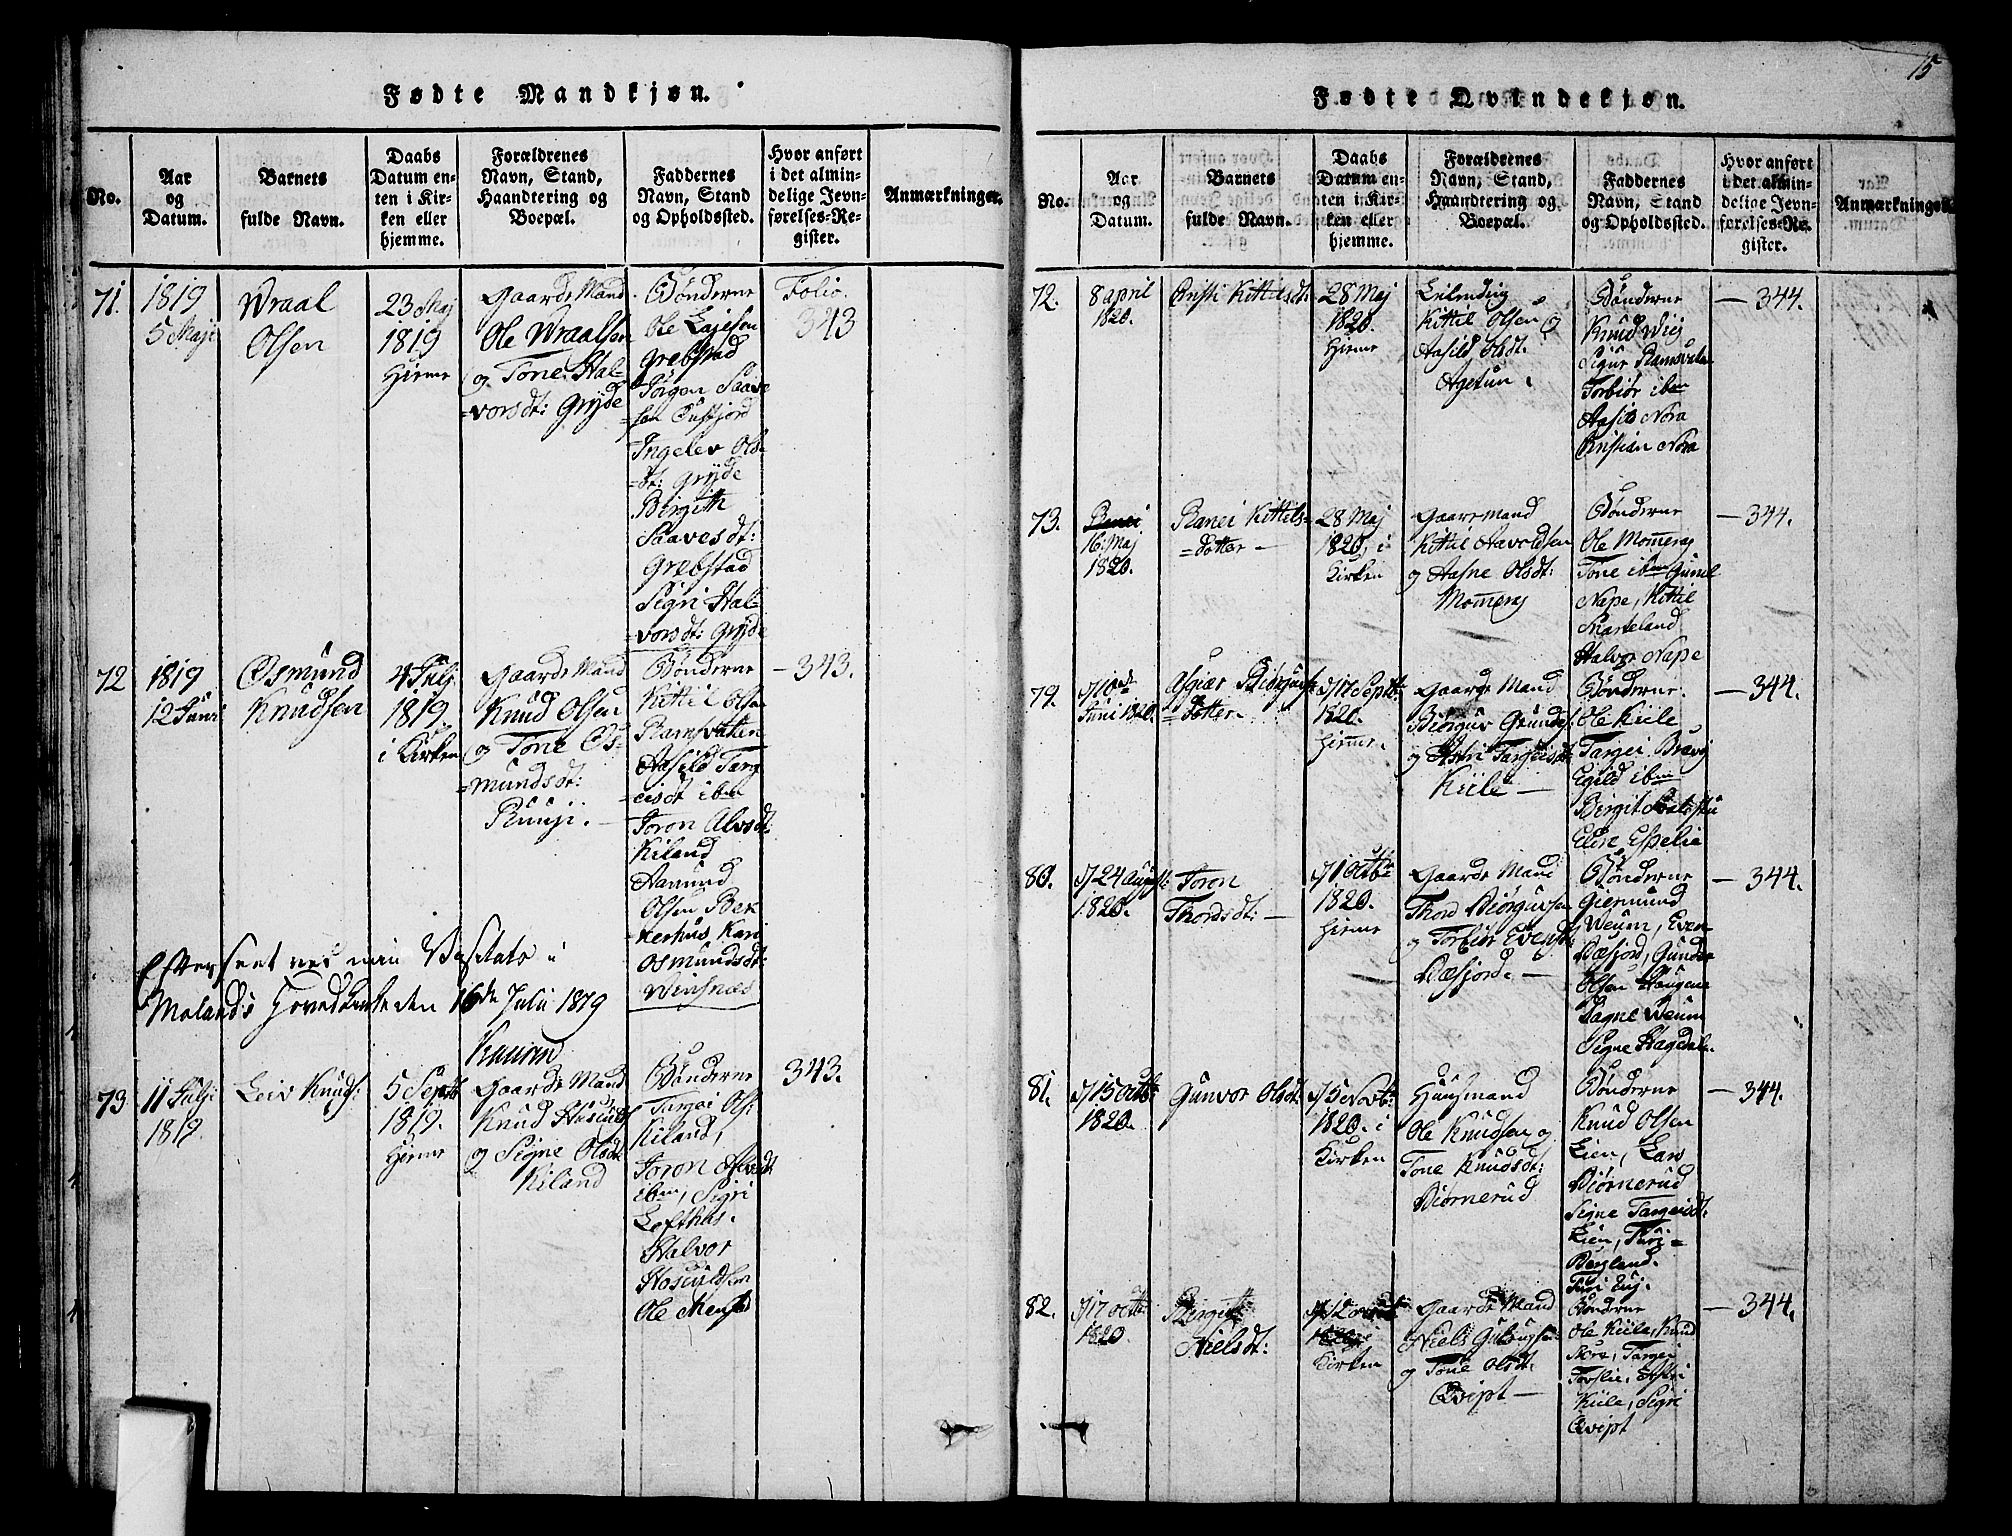 Fødte Mandkjøn.
No.
Aar
og
Datum.
Barnets
fulde Navn.
Daabs
Datum en-
ten i Kir-
ken eller
hjemme.
Forældrenes
Navn, Stand,
Haandtering og
Boepæl.
Faddernes
Navn, Stand
og Opholdssted.
Hvor anført
i det almin-
delige Jevn-
førelses-Re-
gister.
Anmærkninger.
71.
1819
5 Maji
Wraal
Olsen
23 Maj
1819
Hieme
Gaarde Mand
Ole Wraalsen
og Tone Hal-
=vorsdt: Gryde
Bønderne
Ole Lajesen
Grebstad
Jørgen Saave
sen
Ingelev Ols
=dt: Gryde
Birgith
Saavesdt:
Grebstad
Sigri Hal-
=vorsdt: Gryde
Folio.
343
72
1819
12 Juni
Osmund
Knudsen
4 Julj
1819
i Kirken
Gaarde Mand
Knud Olsen
og Tone Os-
=mundsdt:
Ruuji.
Bønderne
Kittil Olsen
Ramsvaten
Aasild Targ
=eisdt ibm
Toron Alvsdt:
Kiland
Aamund
Olsen Bek
=kerhus Kari
Osmundsdt:
Winsnæs
— 343.
Efterseet ved min Visitats i
Molands Hovedkirke den 16de Julii 1819
73
11 Julj
1819.
Leiv Knuds:
5 Septb
1819.
Hieme
Gaarde Mand
Knud
og Signe Olsdt
Kiland
Bønderne
Targei Ols:
Kiland,
Toron Alvsdt
ibm, Sigri
Lofthus.
Halvor
Ole
343.
15
Fødte Qvindekjøn.
No.
Aar
og
Datum.
Barnets
fulde Navn.
Daabs
Datum en-
ten i Kir-
ken eller
hjemme.
Forældrenes
Navn, Stand,
Haandtering og
Boepæl.
Faddernes
Navn, Stand
og Opholdssted.
Hvor anført
i det almin-
delige Jevn-
førelses-Re-
gister.
Anmærkninger.
72.
8 april
1820.
Kittilsdt:
28 Maj
1820.
Hieme
Leilending
Kittil Olsen og
Aasild Olsdt:
Bønderne
Knud Wig
Sigur Ramsvaten
Torbiør ibm
Aasild Nora
Cristian Nora
— 344.
73.
16 Maj
1820.
Ranei Kittils=
=dotter —
28 Maj
1820, i
Kirken
Gaaremand
Kittil Aavoldsen
og Aasne Olsdt:
Momeraj
Bønderne
Ole Momeraj
Tone ibm Gunil
Nape, Kittil
Halvor Nape
— 344.
79.
d/10de
Juni 1820.
Asgiær Biørgufs
=dotter
d/17 Septbr
1820.
Hieme.
Gaarde Mand
Biørguv
og Astri Targeisdt
Kiile —
Bønderne.
Ole Kiile
Targei
Egild ibm
Birgit
Elin Espelie
— 344.
80.
d/24 August:
1820.
Toron
Thordsdt: —
d/1 octbr
1820.
Hieme
Gaarde Mand
Thord Biørgufsen
og Torbiør Evensdt:
Dæsjord —
Bønderne
Giermund
Weum, Even
Dæsjord, Gunder
Olsen Haugene
Dagne Weum
Signe Hagedal.
— 344.
81.
d/15 octbr
1820.
Gunvor Olsdt:
d/5 Novbr
1820. i
Kirken
Huusmand
Ole Knudsen og
Tone Knudsdt:
Biørnerud
Bønderne
Knud Olsen
Lien, Lars
Biørnerud
Signe Targeisdt:
Lien, Thur=
Bergland.
— 344.
82.
d/17 octbr
1820
Birgit
Nielsdt:
Kirken
Gaarde Mand
Niels
og Tone Olsdt:
Qvipt —
Bønderne
Ole Kiile, Knud
Targei
Astri
Kiile, Sigri
Qvipt
— 344.